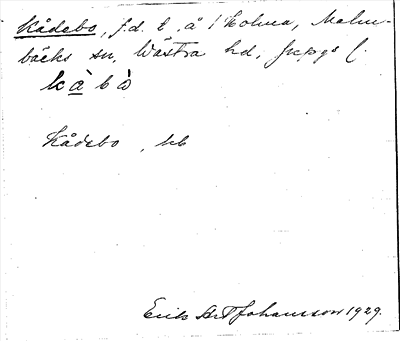 Kådebo, f.d. t. å 1 Holma, Malm-
bäcks sn, Västra hd, Jnkpgs l.
kàbò
Kådebo, ub
Erik Johansson 1929.